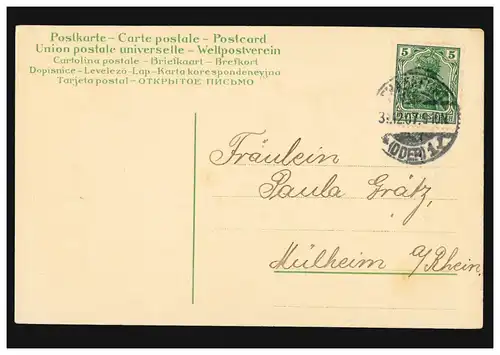 Postkarte – Carte postale – Postcard
Union postale universelle – Weltpostverein
Cartolina postale – Briefkaart – Brefkort
Dopisnice – Levelező-Lap – Karta korespondencyjna
Tarjeta postal – ОТКРЫТОЕ ПИСЬМО
5 5
12.07.9-10N.
(ODER) 1
Fräulein
Paula Grätz,
Mülheim a/Rhein.